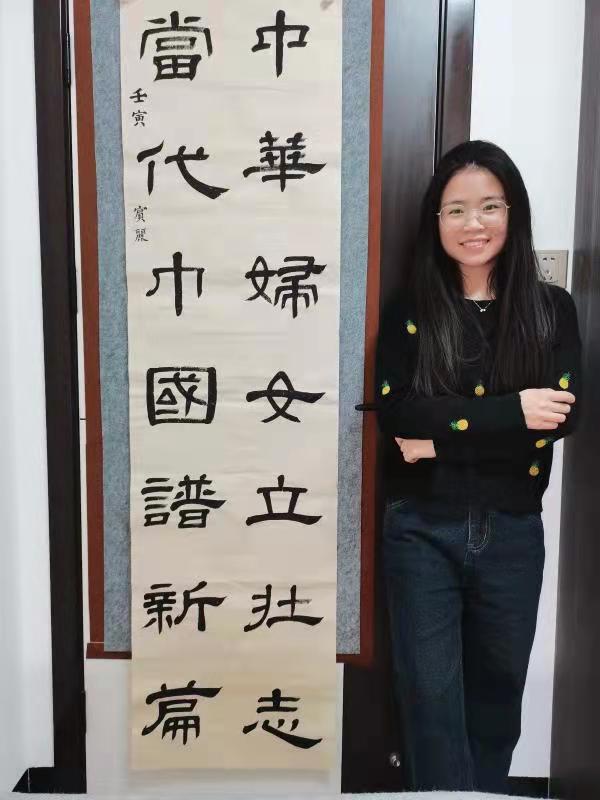 中華婦女立壯志
當代巾國譜新篇
壬寅 賓麗